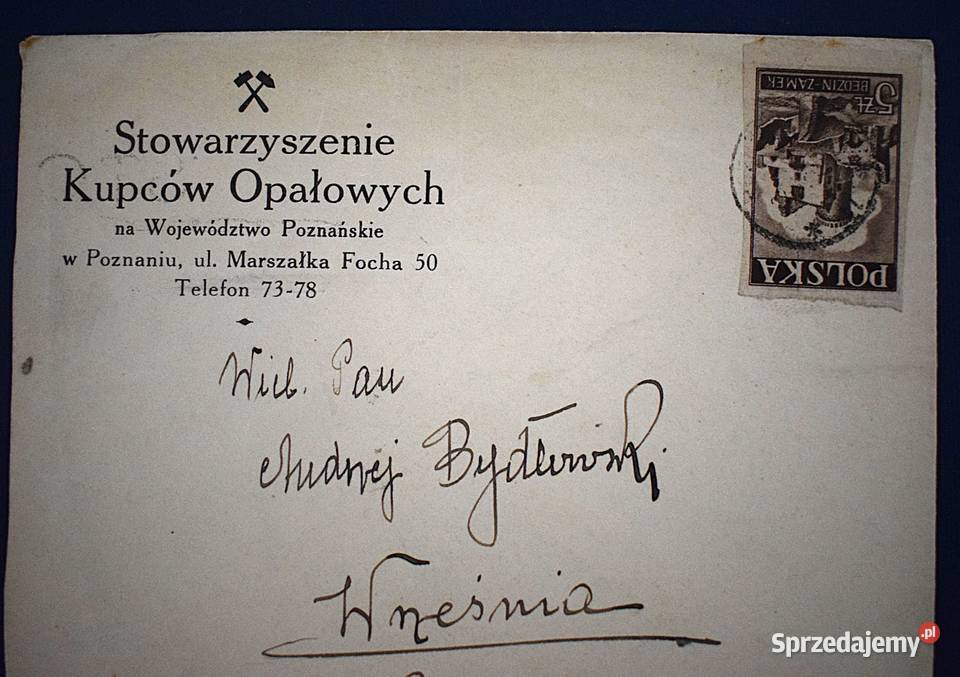 Stowarzyszenie
Kupców Opałowych
na Województwo Poznańskie
w Poznaniu, ul. Marszałka Focha 50
Telefon 73-78
POLSKA
5 ZŁ
BĘDZIN-ZAMEK
Wielb. Pan
Andrzej Bydłowski
Września
Sprzedajemy.pl